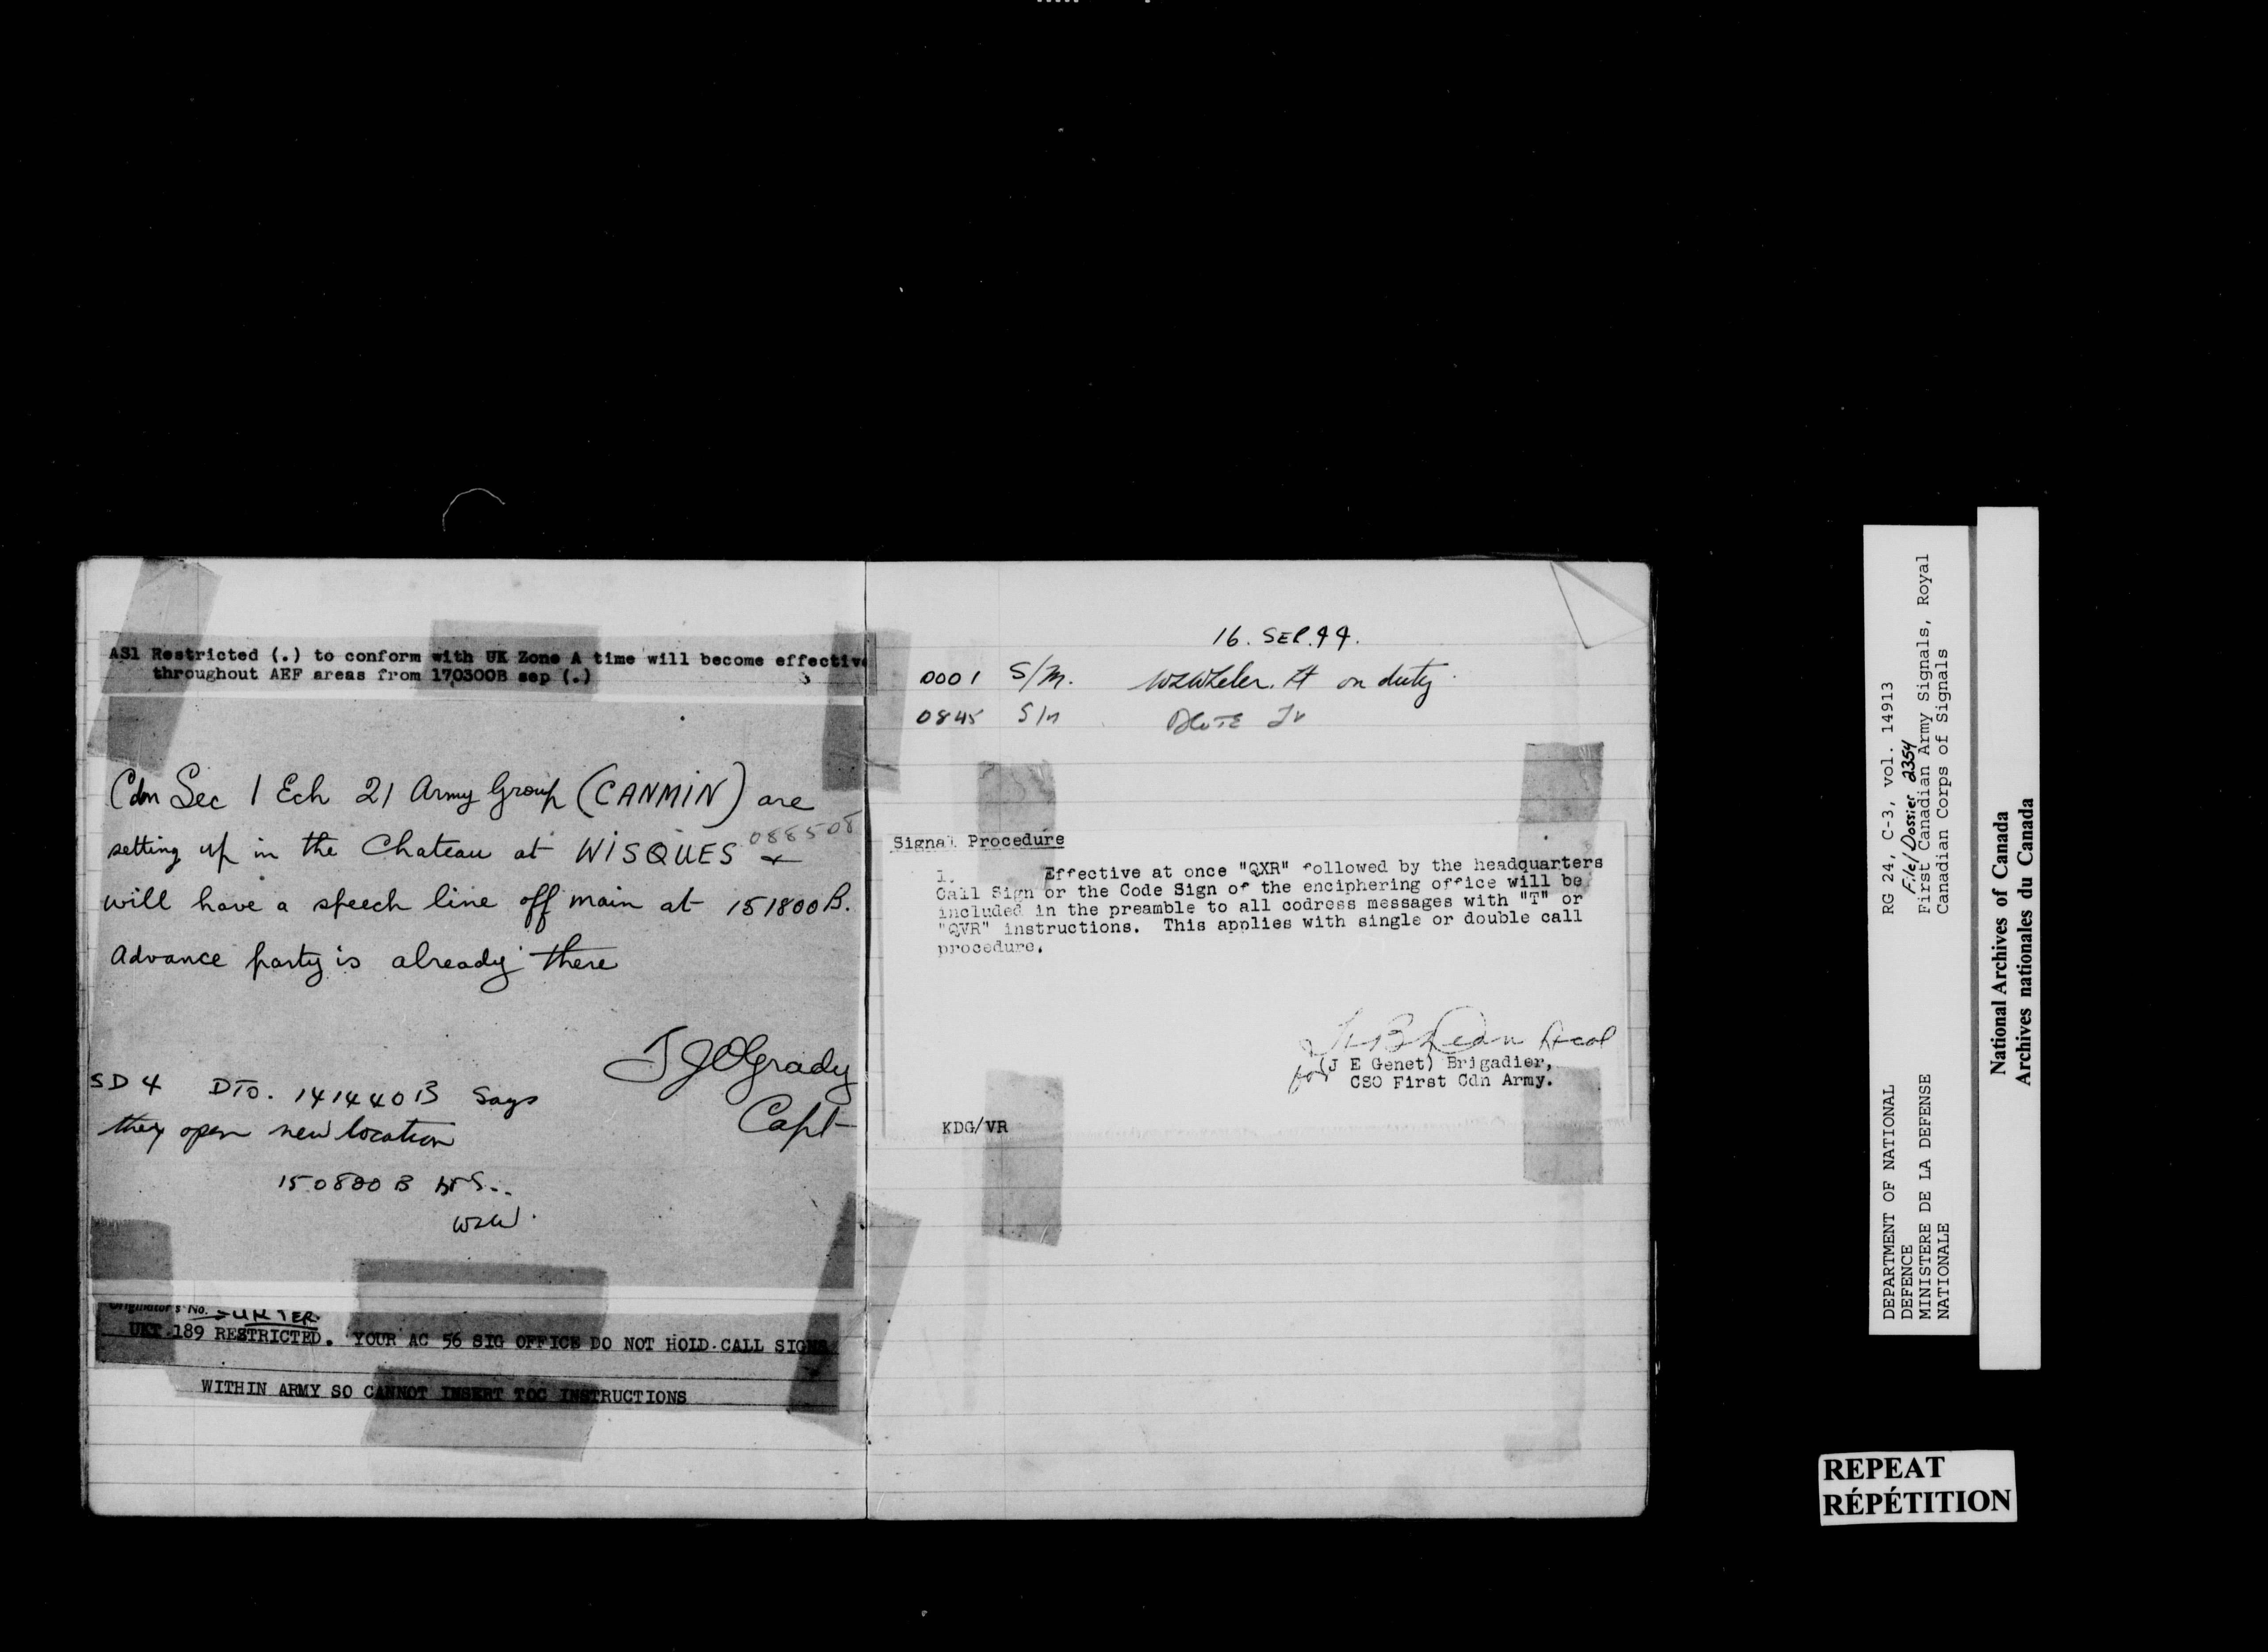 AS1 Restricted (.) to conform with UK Zone A time will become effective
throughout AEF areas from 170300B sep (.)
Cdn Sec 1 Ech 21 Army Group (CANMIN) are
setting up in the Chateau at WISQUES 088508 &
will have a speech line off main at 151800 B.
Advance party is already there
J J O'Grady
Capt
SD 4 DTO. 141440 B Says
they open new location
150800 B hrS..
WSW.
Originator's No.
UKT 189 RESTRICTED. YOUR AC 56 SIG OFFICE DO NOT HOLD CALL SIGNS
WITHIN ARMY SO CANNOT INSERT TOC INSTRUCTIONS
16. SEP. 44.
0001 S/M. on duty
0845 S/M
Signal Procedure
1. Effective at once "QXR" followed by the headquarters
Call Sign or the Code Sign of the enciphering office will be
included in the preamble to all codress messages with "T" or
"QVR" instructions. This applies with single or double call
procedure.
for (J E Genet) Brigadier,
CSO First Cdn Army.
KDG/VR
RG 24, C-3, vol. 14913
File/Dossier 2354
First Canadian Army Signals, Royal
Canadian Corps of Signals
DEPARTMENT OF NATIONAL
DEFENCE
MINISTERE DE LA DEFENSE
NATIONALE
National Archives of Canada
Archives nationales du Canada
REPEAT
RÉPÉTITION